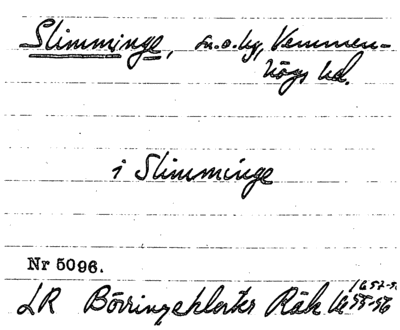 Slimminge, sn. o. by, Vemmen-
högs hd.
i Slimminge
Nr 5096.
LR Börringeklosters Räk